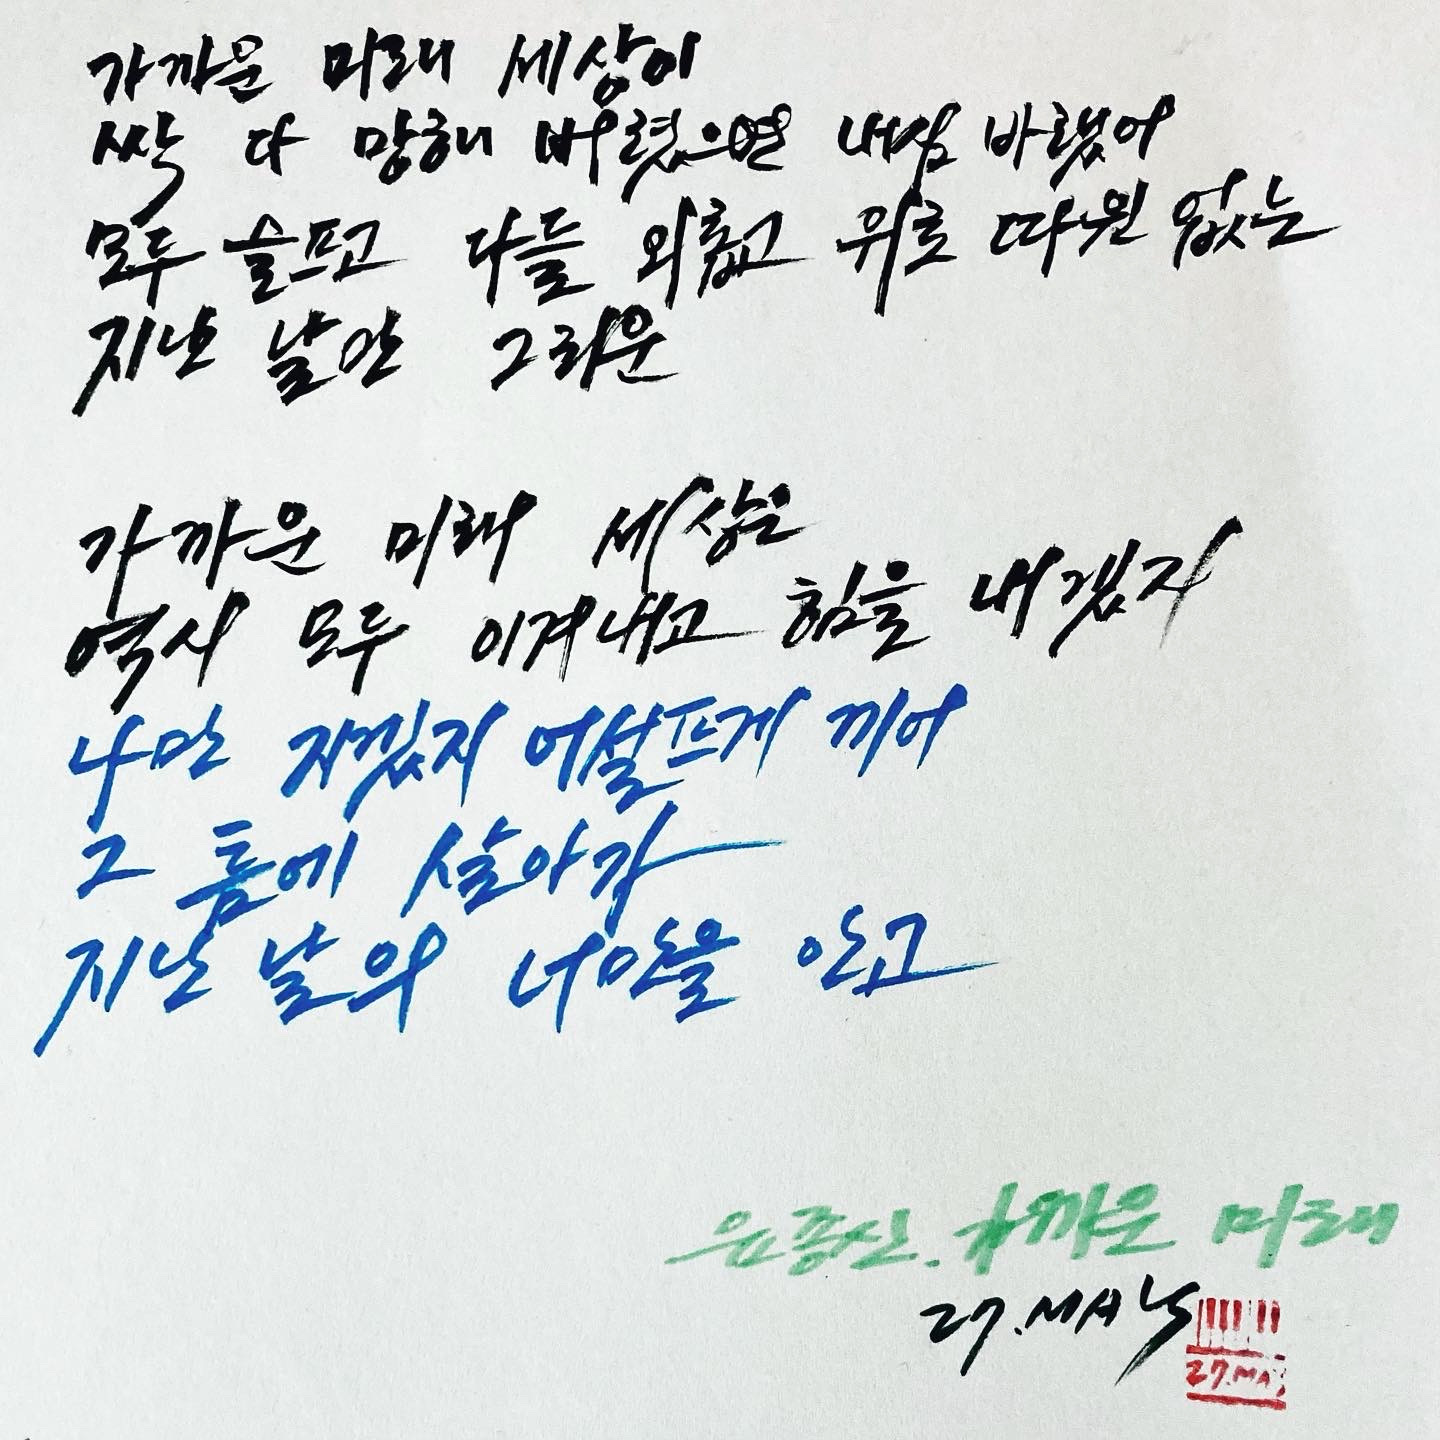 가까운 미래 세상이
싹 다 망해 버렸으면 내심 바랬어
모두 슬프고 다들 외롭고 위로 따윈 없는
지난 날만 그리운
가까운 미래 세상은
역시 모두 이겨내고 힘을 내겠지
나만 자꾸 어설프게 끼어
그 틈에 살아가
지난 날의 너만을 안고
윤종신. 가까운 미래
27.MAY
27.MA